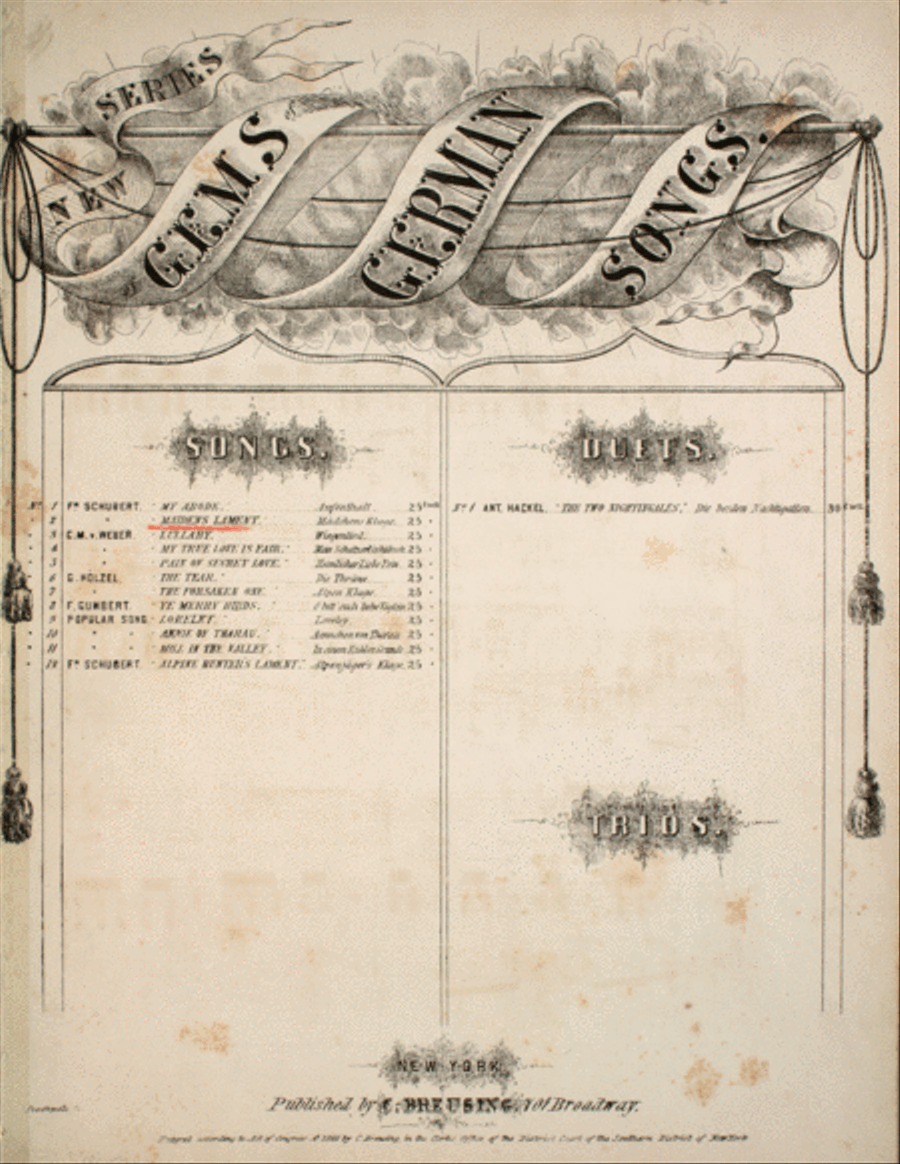 NEW
SERIES
of GEMS of GERMAN SONGS.
SONGS.
No. 1 Fz SCHUBERT. "MY ABODE." Aufenthalt 25 Cents
2 " "MAIDEN'S LAMENT." Mädchens Klage. 25
3 C.M.v.WEBER. "LULLABY." Wiegenlied. 25
4 " "MY TRUE LOVE IS FAIR." 25
5 " OF SECRET LOVE." 25
6 G. HÖLZEL. "THE TEAR." Die Thräne. 25
7 " "THE FORSAKEN ONE." Alpen Klage. 25
8 F. GUMBERT. "YE MERRY BIRDS." 25
9 POPULAR SONG. "LORELEY." Loreley. 25
10 " " "ANNIE OF THARAU." Aennchen von Tharau. 25
11 " " IN THE VALLEY." 25
12 Fz SCHUBERT. "ALPINE HUNTER'S LAMENT." Alpenjäger's Klage. 25
DUETS.
No. 1 ANT. HACKEL. "THE TWO NIGHTINGALES," Die beiden Nachtigallen. 30 Cents.
TRIOS.
NEW YORK
Published by C. BREUSING, 701 Broadway.
Entered according to Act of Congress by C. Breusing in the Clerks Office of the District Court of the Southern District of New York